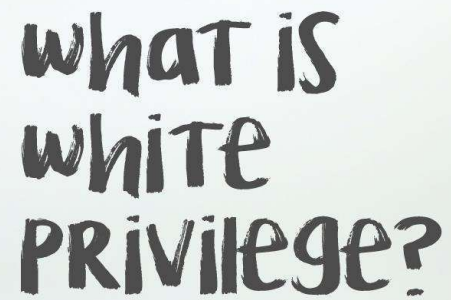 What is
white
privilege?